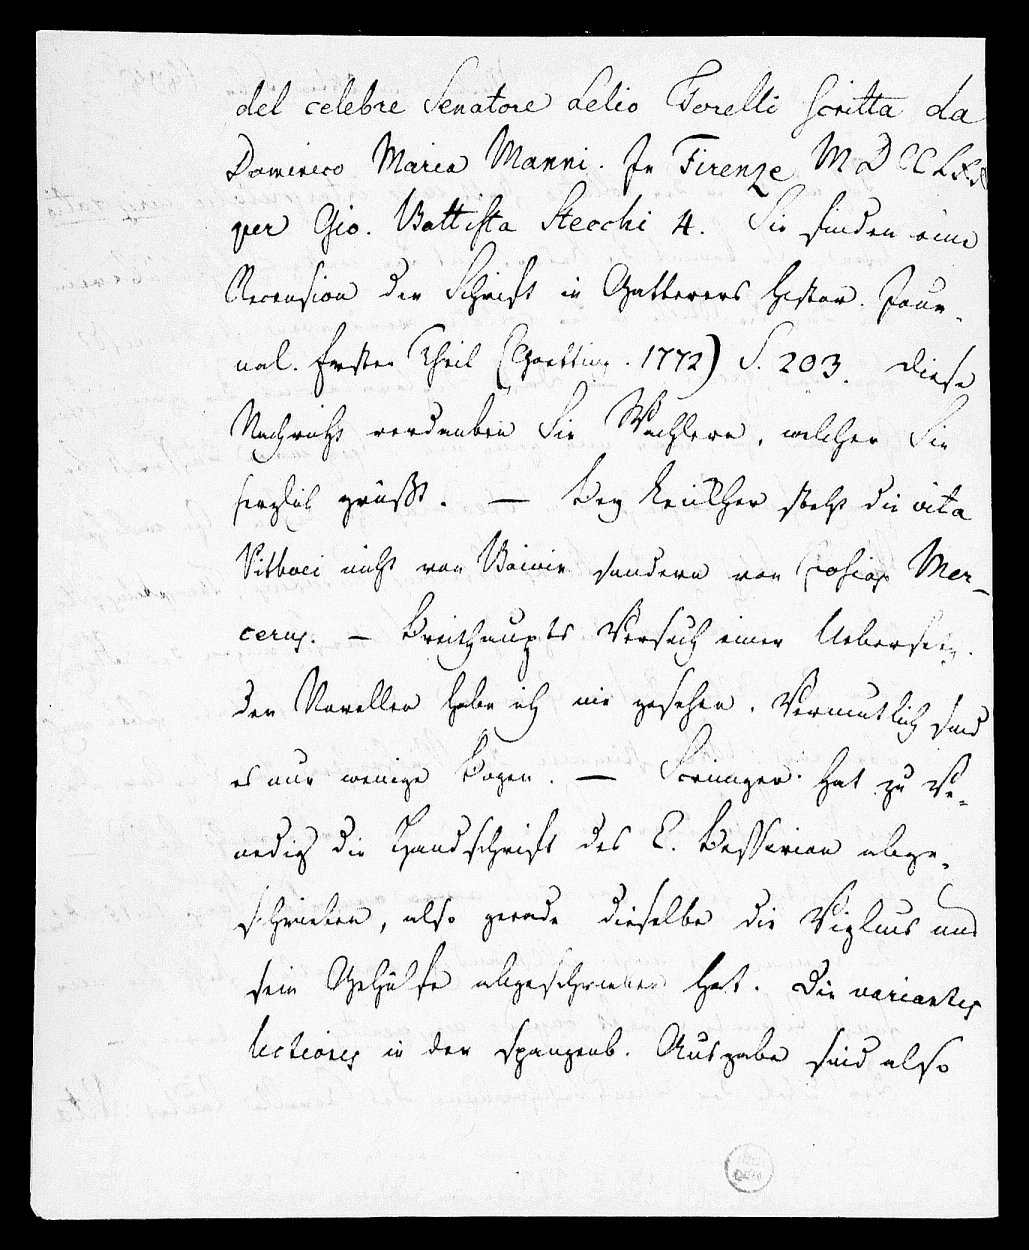 del celebre Senatore Lelio Torelli scritta da
Dominico Maria Manni. In Firenze MDCCLXX
per Gio. Battista Stecchi 4. Sie finden eine
Recension der Schrift in Gatterers histor. Jour-
nal. Erster Theil (Goetting. 1772) S. 203. Diese
Nachricht verdanken Sie Wachlern, welcher Sie
herzlich grüßt. — Bey Leickher steht die vita
Pithoei nicht von Boivin sondern von Josias Mer-
cerus. — Breithaupts Versuch einer Uebersetz.
der Novellen habe ich nie gesehen. Vermutlich sind
es nur wenige Bogen. — Scrimger hat zu Ve-
nedig die Handschrift des C. Bessarion abge-
schrieben, also gerade dieselbe die Viglius und
sein Gehülfe abgeschrieben hat. Die variantes
lectiones in der Spangenb. Ausgabe sind also